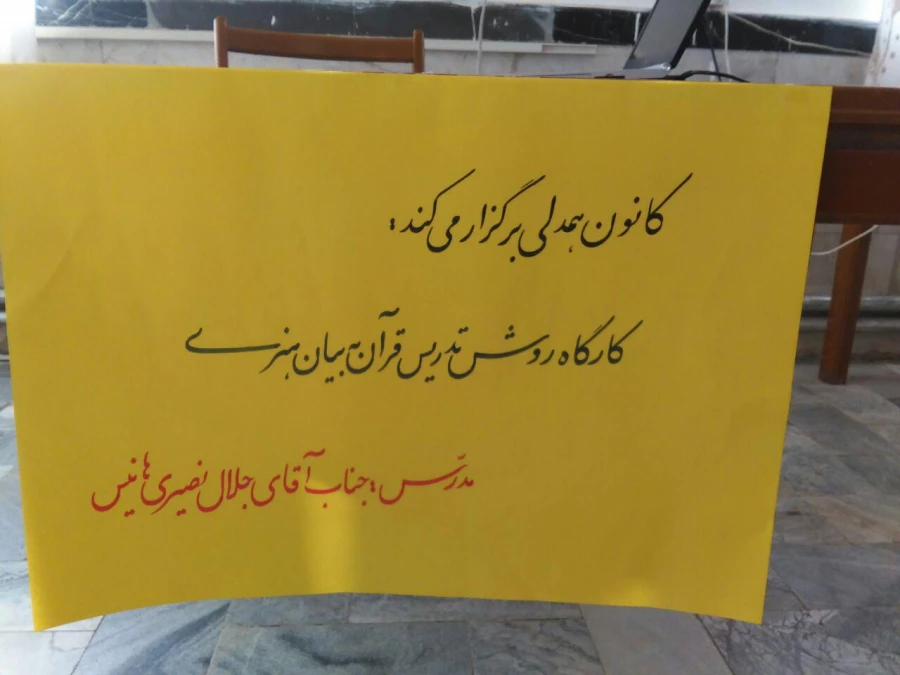 کانون همدلی برگزار می کند:
کارگاه روش تدریس قرآن به بیان هنری
مدرّس: جناب آقای جلال نصیری هانیس